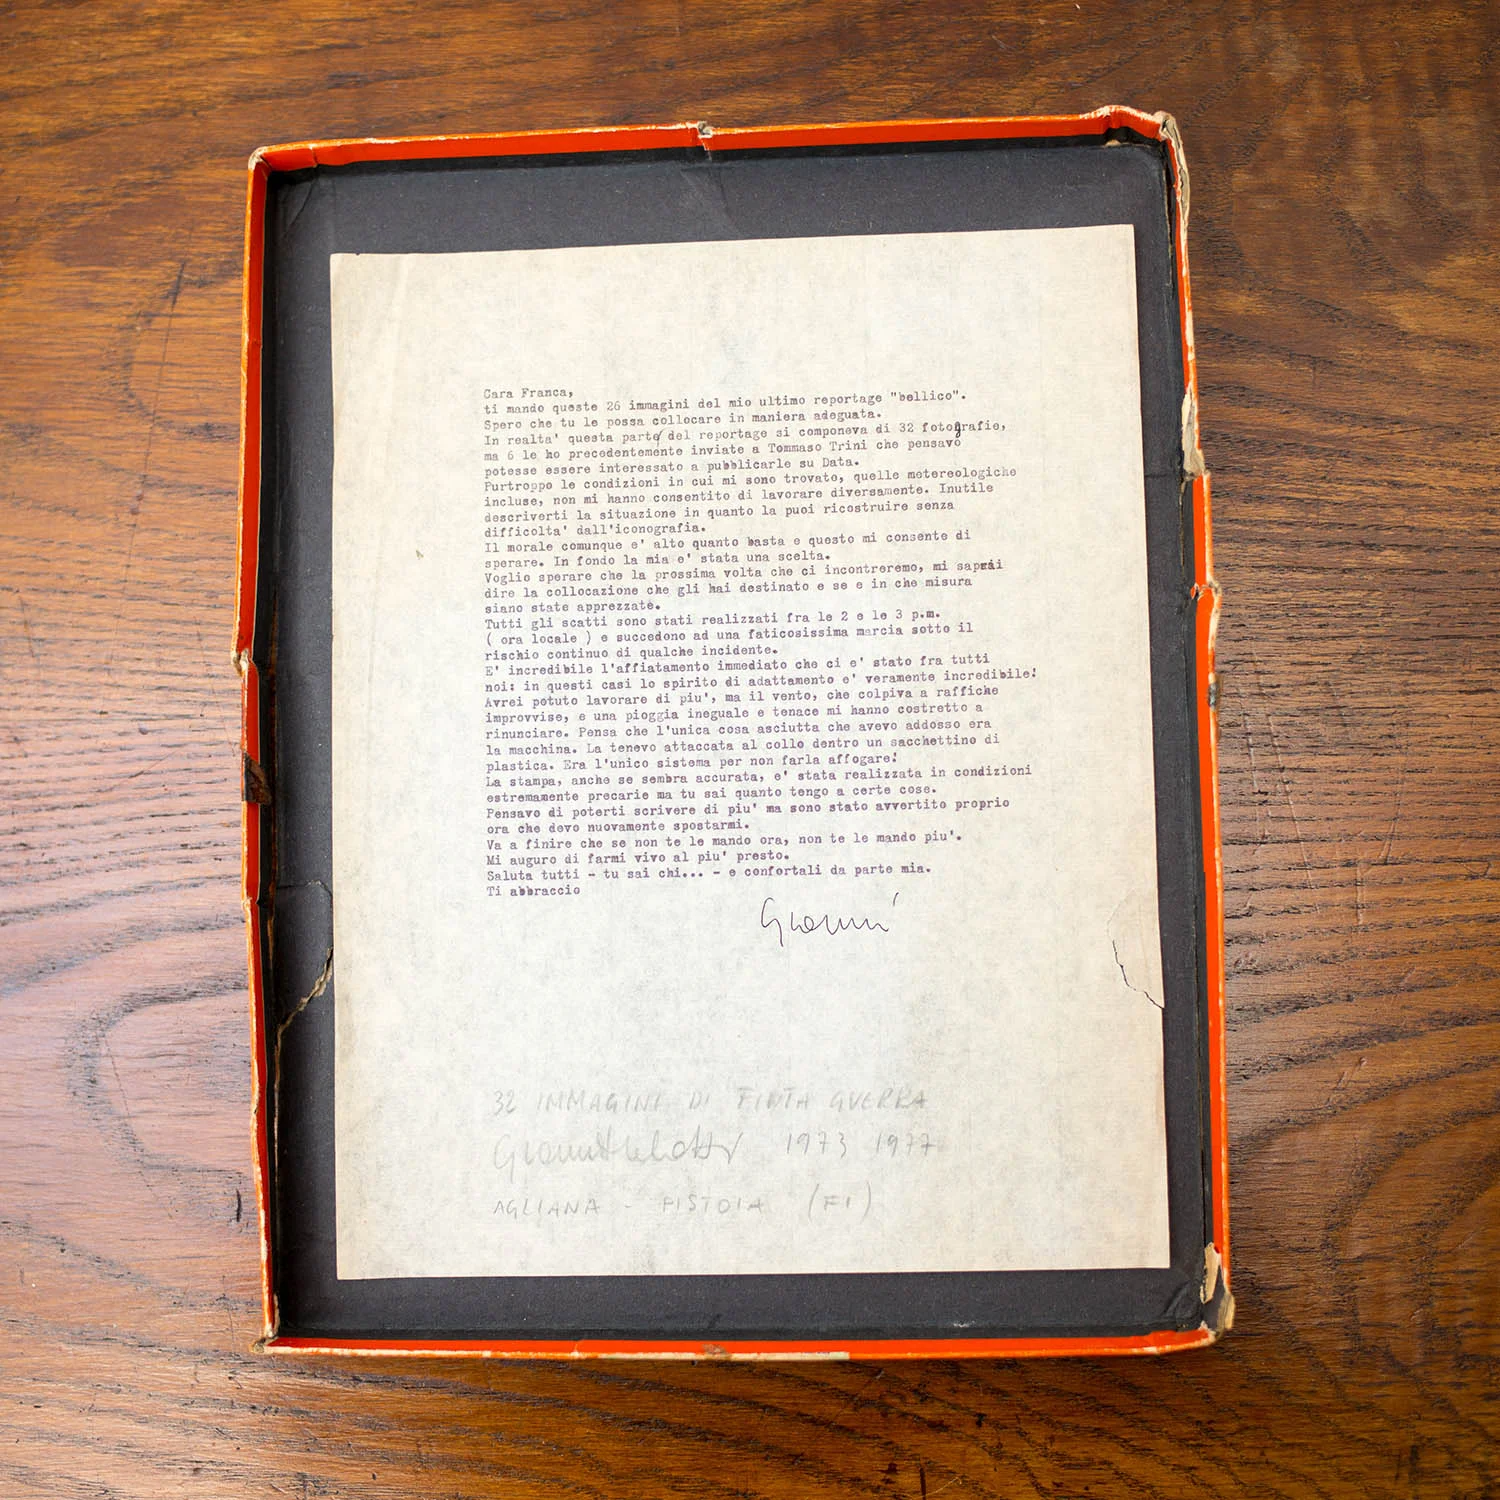 Cara Franca,
ti mando queste 26 immagini del mio ultimo reportage "bellico".
Spero che tu le possa collocare in maniera adeguata.
In realta' questa parte del reportage si componeva di 32 fotografie,
ma 6 le ho precedentemente inviate a Tommaso Trini che pensavo
potesse essere interessato a pubblicarle su Data.
Purtroppo le condizioni in cui mi sono trovato, quelle metereologiche
incluse, non mi hanno consentito di lavorare diversamente. Inutile
descriverti la situazione in quanto la puoi ricostruire senza
difficolta' dall'iconografia.
Il morale comunque e' alto quanto basta e questo mi consente di
sperare. In fondo la mia e' stata una scelta.
Voglio sperare che la prossima volta che ci incontreremo, mi saprai
dire la collocazione che gli hai destinato e se e in che misura
siano state apprezzate.
Tutti gli scatti sono stati realizzati fra le 2 e le 3 p.m.
( ora locale ) e succedono ad una faticosissima marcia sotto il
rischio continuo di qualche incidente.
E' incredibile l'affiatamento immediato che ci e' stato fra tutti
noi: in questi casi lo spirito di adattamento e' veramente incredibile!
Avrei potuto lavorare di piu', ma il vento, che colpiva a raffiche
improvvise, e una pioggia ineguale e tenace mi hanno costretto a
rinunciare. Pensa che l'unica cosa asciutta che avevo addosso era
la macchina. La tenevo attaccata al collo dentro un sacchettino di
plastica. Era l'unico sistema per non farla affogare!
La stampa, anche se sembra accurata, e' stata realizzata in condizioni
estremamente precarie ma tu sai quanto tengo a certe cose.
Pensavo di poterti scrivere di piu' ma sono stato avvertito proprio
ora che devo nuovamente spostarmi.
Va a finire che se non te le mando ora, non te le mando piu'.
Mi auguro di farmi vivo al piu' presto.
Saluta tutti - tu sai chi... - e confortali da parte mia.
Ti abbraccio
Gianni
32 IMMAGINI DI FINTA GUERRA
Gianni Melotti 1973 1977
AGLIANA - PISTOIA (FI)